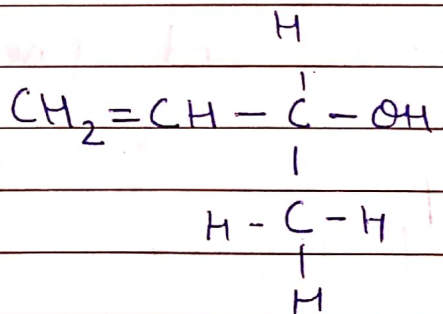 H
CH₂=CH-C-OH
H-C-H
H